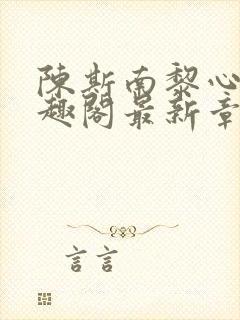 陳斯南黎心
趣閣最新章
言言